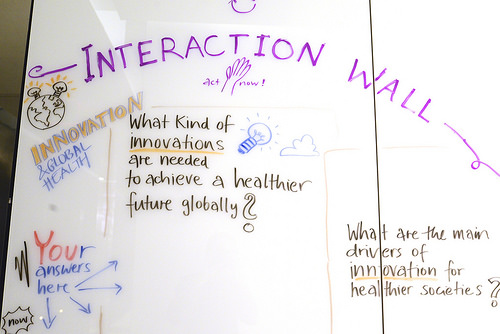 INTERACTION WALL
act now!
INNOVATION
& GLOBAL
HEALTH
What Kind of
innovations
are needed
to achieve a healthier
future globally?
Your
answers
here
now
What are the main
drivers of
innovation for
healthier societies?